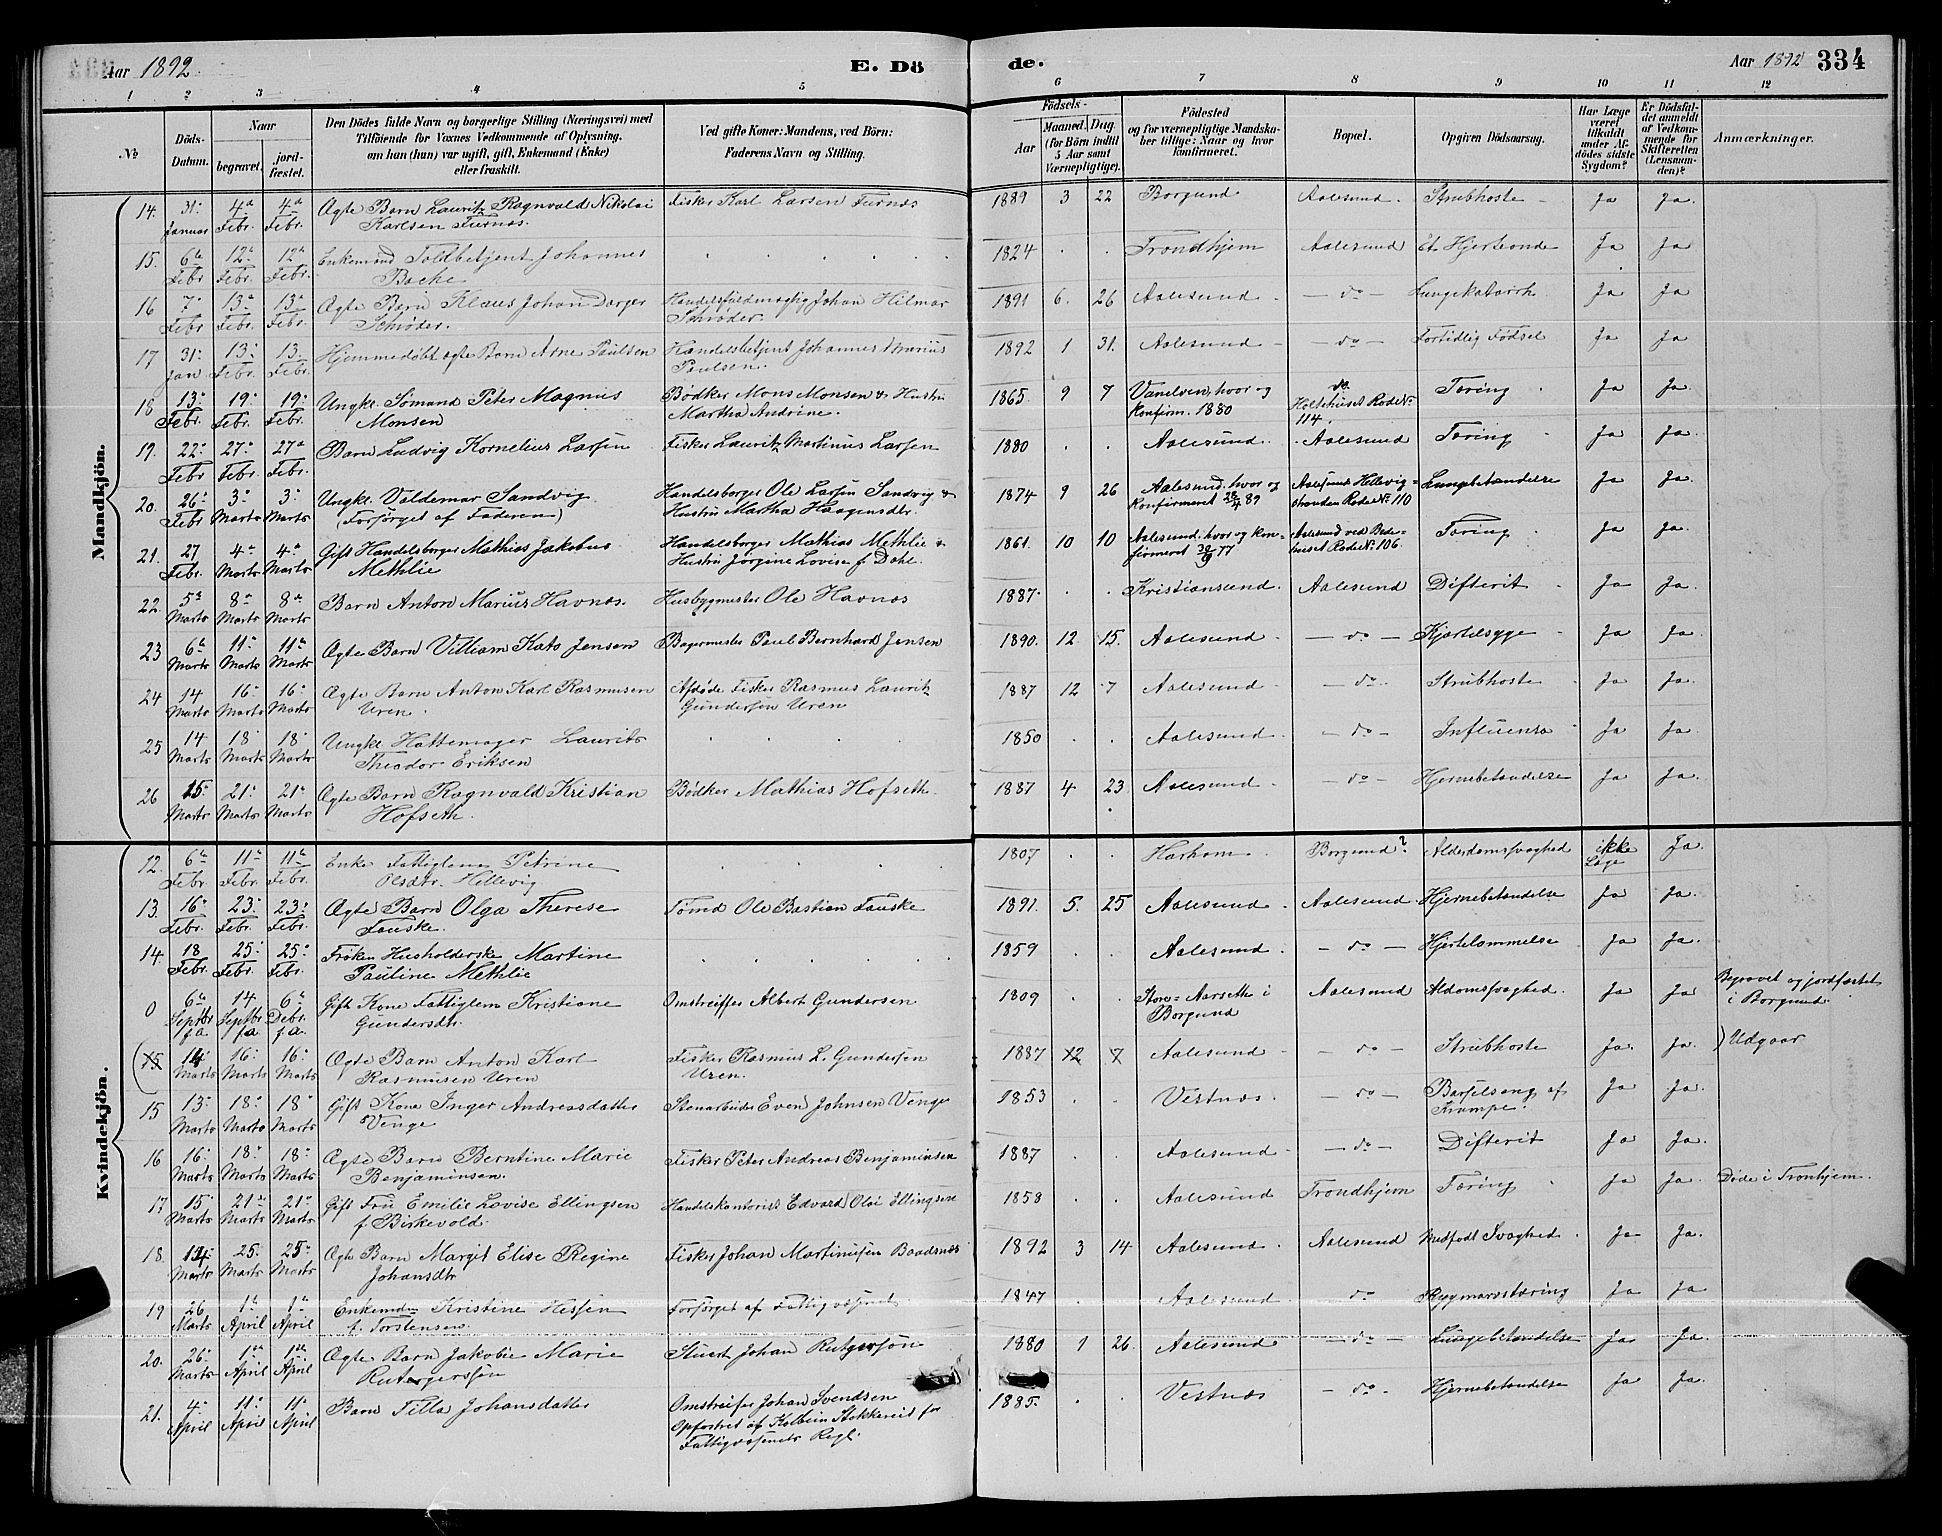 Aar 1892. E. Dö
de. Aar 1892 334
1 2 3 4 5 6 7 8 9 10 11 12
No
Döds-Datum.
Naar
begravet.
jord-fæstet.
Den Dödes fulde Navn og borgerlige Stilling (Næringsvei) med
Tilföiende for Voxnes Vedkommende af Oplysning,
om han (hun) var ugift, gift, Enkemand (Enke)
eller fraskilt.
Ved gifte Koner: Mandens, ved Börn:
Faderens Navn og Stilling.
Födsels-
Aar
Maaned. Dag.
(for Börn indtil
5 Aar samt
Værnepligtige).
Födested
og for værnepligtige Mandska-
ber tillige: Naar og hvor
konfirmeret.
Bopæl.
Opgiven Dödsaarsag.
Har Læge
været
tilkaldt
under Af-
dödes sidste
Sygdom?
Er Dödsfal-
det anmeldt
af Vedkom-
mende for
Skifteretten
(Lensman-
den)?
Anmærkninger.
Mandkjön.
14. 31: Januar 4de Febr. 4de Febr. Ægte Barn Lauritz Ragnvald Nikolai Karlsen Furnæs. Fisker Karl Larsen Furnæs 1889 3 22 Borgund Aalesund. Strubhoste Ja Ja.
15. 6te Febr 12te Febr. 12te Febr. Enkemand Toldbetjent Johannes Backe 1824 . . Trondhjem Aalesund Et Hjerteonde Ja Ja
16 7: Febr 13de Febr. 13de Febr. Ægte Barn Klaus Johan Darger Schrøder. Handelsfuldmægtig Johan Hilmar Schrøder. 1891 6. 26 Aalesund - do - Lungekatarrh. Ja Ja
17 31: Jan 13: Febr. 13. Febr. Hjemmedøbt ægte Barn Arne Paulsen Handelsbetjent Johannes Marius Paulsen. 1892 1 31. Aalesund - do - Fortidlig Fødsel Ja Ja
18 13: Febr. 19: Febr. 19: Febr. Ungkl. Sømand Peter Magnus Monsen Bødker Mons Monsen & Hustru Martha Andrine. 1865. 9 7 Vanelven, hvor og konfirm. 1880 do Holsthuset Rode No 114. Tæring Ja Ja
19. 22: Febr 27: Febr. 27de Febr. Barn Ludvig Kornelius Larsen Fisker Lauritz Martinus Larsen 1880 . . Aalesund. Aalesund Tæring Ja Ja.
20. 26: Febr 3: Marts 3: Marts Ungkl. Valdemar Sandvig (Forsørget af Faderen) Handelsborger Ole Larsen Sandvig & Hustru Martha Haagensdtr. 1874 9 26 Aalesund. hvor og konfirmeret 28/4 89 Aalesund Hellevig-stranden Rode No 110 Lungebetændelse Ja Ja.
21. 27 Febr. 4de Marts 4de Marts Gift Handelsborger Mathias Jakobus Methlie Handelsborger Mathias Methlie & Hustru Jørgine Lovise f. Dahl. 1861. 10 10 Aalesund. hvor og kon-firmeret 30/9 77 Aalesund ved Bede-huset Rode No 106. Tæring Ja Ja.
22. 5te Marts 8de Marts 8de Marts Barn Anton Marius Havnæs. Husbygmester Ole Havnæs 1887. . . Kristiansund Aalesund Difterit Ja Ja
23 6te Marts 11: Marts 11te Marts Ægte Barn Villiam Kato Jensen Bagermester Paul Bernhard Jensen 1890. 12. 15. Aalesund - do - Kjertelsyge Ja Ja.
24 14 Marts 16: Marts 16: Marts Ægte Barn Anton Karl Rasmusen Uren. Afdøde Fisker Rasmus Lauritz Gundersen Uren 1887 12 7 Aalesund - do - Strubhoste Ja Ja.
25 14 Marts 18: Marts 18: Marts Ungkl Hattemager Laurits Theodor Eriksen 1850 . . Aalesund. - do - Influensa Ja Ja
26 15 Marts 21: Marts 21de Marts Ægte Barn Ragnvald Kristian Hofseth. Bødker Mathias Hofseth. 1887 4 23 Aalesund - do - Hjernebetændelse Ja Ja
Kvindekjön.
12. 6te Febr. 11te Febr. 11te Febr. Enke Fattiglem Petrine Olsdtr. Hellevig 1807 . . Harham. Borgund? Alderdomssvaghed ikke Læge Ja.
13. 16: Febr. 23: Febr. 23: Febr. Ægte Barn Olga Therese Fauske. Tømd Ole Bastian Fauske 1891. 5. 25 Aalesund. Aalesund Hjernebetændelse Ja Ja.
14. 18 Febr. 25: Febr. 25: Febr. Frøken Husholderske Martine Pauline Methlie 1859 . . Aalesund. - do - Hjertelammelse Ja Ja.
0 6te Septbr f.a. 14 Septbr f.a. 6te Debr. f.a. Gift Kone Fattiglem Kristiane Gundersdtr. Omstreiffer Albert Gundersen 1809 . . Store-Aarseth i Borgund Aalesund Aldomssvaghed. Ja Ja Begravet og jordfæstet i Borgund.
(15 14: Marts 16: Marts 16: Marts Ægte Barn Anton Karl Rasmusen Uren Fisker Rasmus L. Gundersen Uren. 1887 12 7 Aalesund - do - Strubhoste Ja. Ja. ) Udgaar
15 13: Marts 18: Marts 18: Marts Gift Kone Inger Andreasdatter Venge Stenarbeider Even Johnsen Venge 1853 . . Vestnæs. - do - Barselseng af Krampe. Ja Ja
16 16: Marts 18: Marts 18: Marts Ægte Barn Berntine Marie Benjaminsen. Fisker Peter Andreas Benjaminsen 1887 . . Aalesund - do - Difterit Ja Ja.
17 15 Marts 21de Marts 21de Marts Gift Fru Emilie Lovise Ellingsen f. Birkevold. Handelskontorist Edvard Olai Ellingsen 1858 . . Aalesund Trondhjem Tæring Ja Ja. Døde i Tronhjem.
18. 14 Marts 25. Marts 25: Marts Ægte Barn Margit Elise Regine Johansdtr Fisker Johan Martinusen Baadsnæs 1892 3 14 Aalesund. Aalesund Medfødt Svaghed. Ja Ja.
19 26 Marts 1te April 1te April Enkemdn Kristine Hessen f. Torstensen Forsørget af Fattigvæsenet 1847 . . Aalesund. do - Rygmarvstæring Ja Ja
20. 26: Marts 1te April 1te April Ægte Barn Jakobie Marie Rutgerssen Stuert Johan Rutgersøn 1880 1 26. Aalesund - do - Lungebetændelse Ja Ja.
21. 4: April 11: April 11: April Barn Tilla Johansdatter Omstreifer Johan Svendsen Opfostret af Kolbein Stokkereit for Fattigvæsenets Regl. 1885. . . Vestnæs - do - Hjernebetændelse Ja Ja.